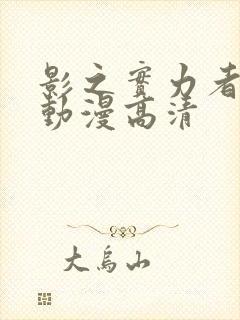 影之實力者
動漫高清
大烏山